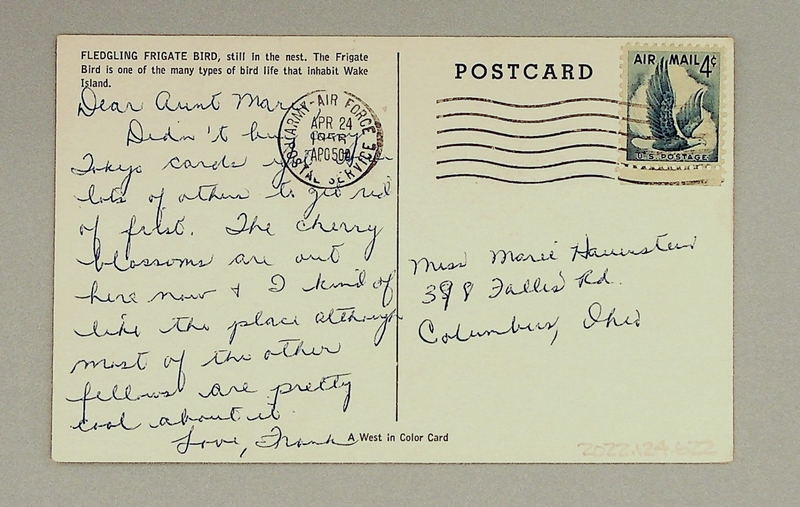 FLEDGLING FRIGATE BIRD, still in the nest. The Frigate
Bird is one of the many types of bird life that inhabit Wake
Island.
POSTCARD
AIR MAIL 4¢
U.S. POSTAGE
ARMY-AIR FORCE
POSTAL SERVICE
APR 24
APO 500
Dear Aunt Marie,
Didn't buy any
Tokyo cards yet
lots of others to get rid
of frist. The cherry
blossoms are out
here now & I kind of
like the place although
most of the other
fellows are pretty
cool about it.
Love, Frank
Miss Marie Hauerstein
398 Fallis Rd.
Columbus, Ohio
A West in Color Card
2022.124.622